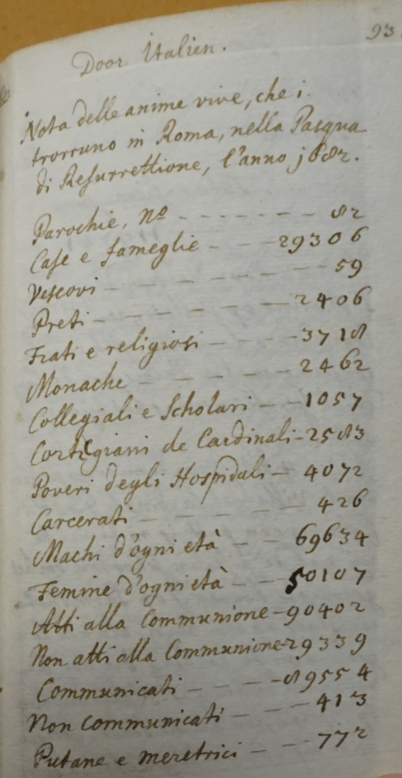 Door Italien.
93
Nota delle anime vive, che i
trorruno in Roma, nella Pasqua
di Resurrettione, l'anno j682.
Parochie, nº - - - - - - - 82
Case e fameglie - - - 29306
Vescovi - - - - - - - - 59
Preti - - - - - - - 2406
Frati e religiosi - - - - 3718
Monache - - - - - 2462
Collegiali e Scholari - - 1057
Cortigiani de Cardinali - 2583
Poveri degli Hospidali - 4072
Carcerati - - - - - - 426
Machi d'ogni età - - 69634
Femine d'ogni età - - 50107
Atti alla Communione - 90402
Non atti alla Communione - 29339
Communicati - - - - 89554
Non communicati - - - 413
Putane e meretrici - - 772